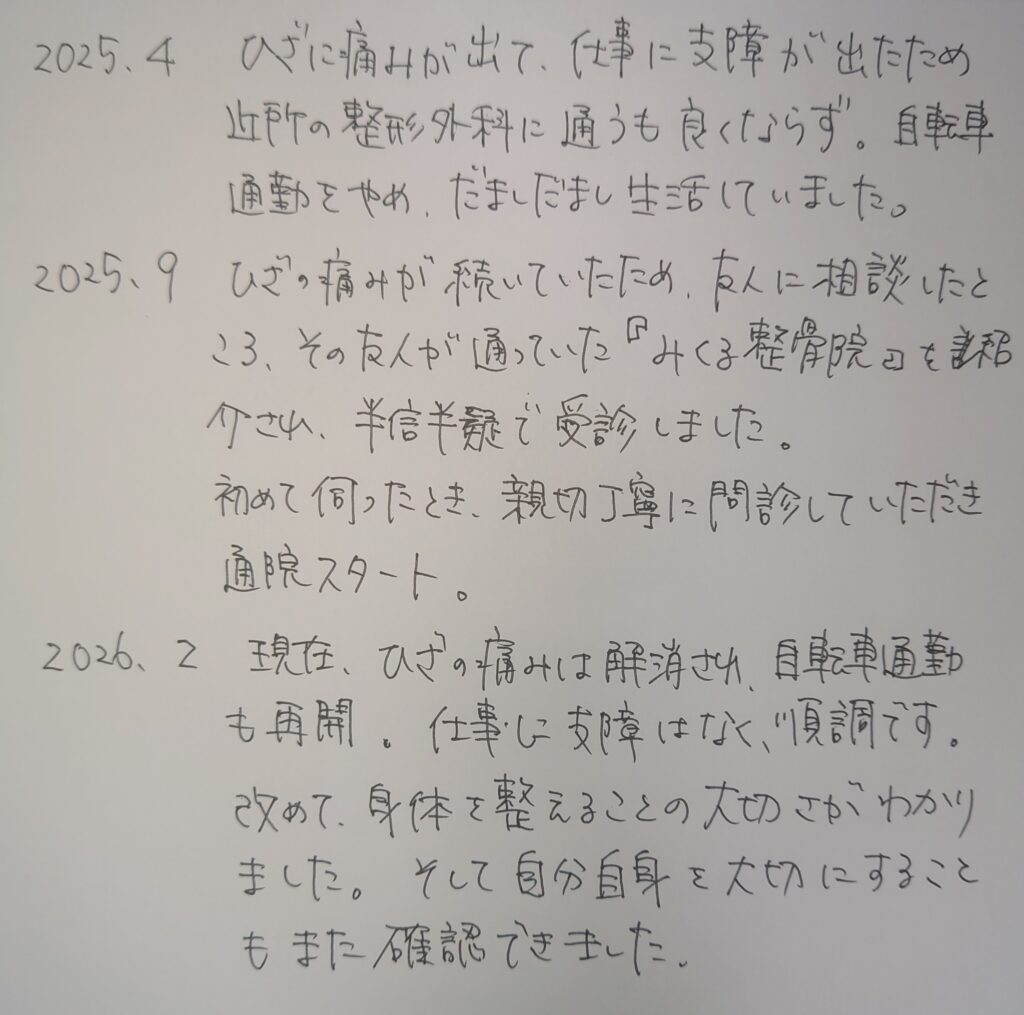 2025.4 ひざに痛みが出て、仕事に支障が出たため
近所の整形外科に通うも良くならず。自転車
通勤をやめ、だましだまし生活していました。
2025.9 ひざの痛みが続いていたため、友人に相談したと
ころ、その友人が通っていた『みくる整骨院』を紹
介され、半信半疑で受診しました。
初めて伺ったとき、親切丁寧に問診していただき
通院スタート。
2026.2 現在、ひざの痛みは解消され、自転車通勤
も再開。仕事に支障はなく、順調です。
改めて、身体を整えることの大切さがわかり
ました。そして自分自身を大切にすること
もまた確認できました。